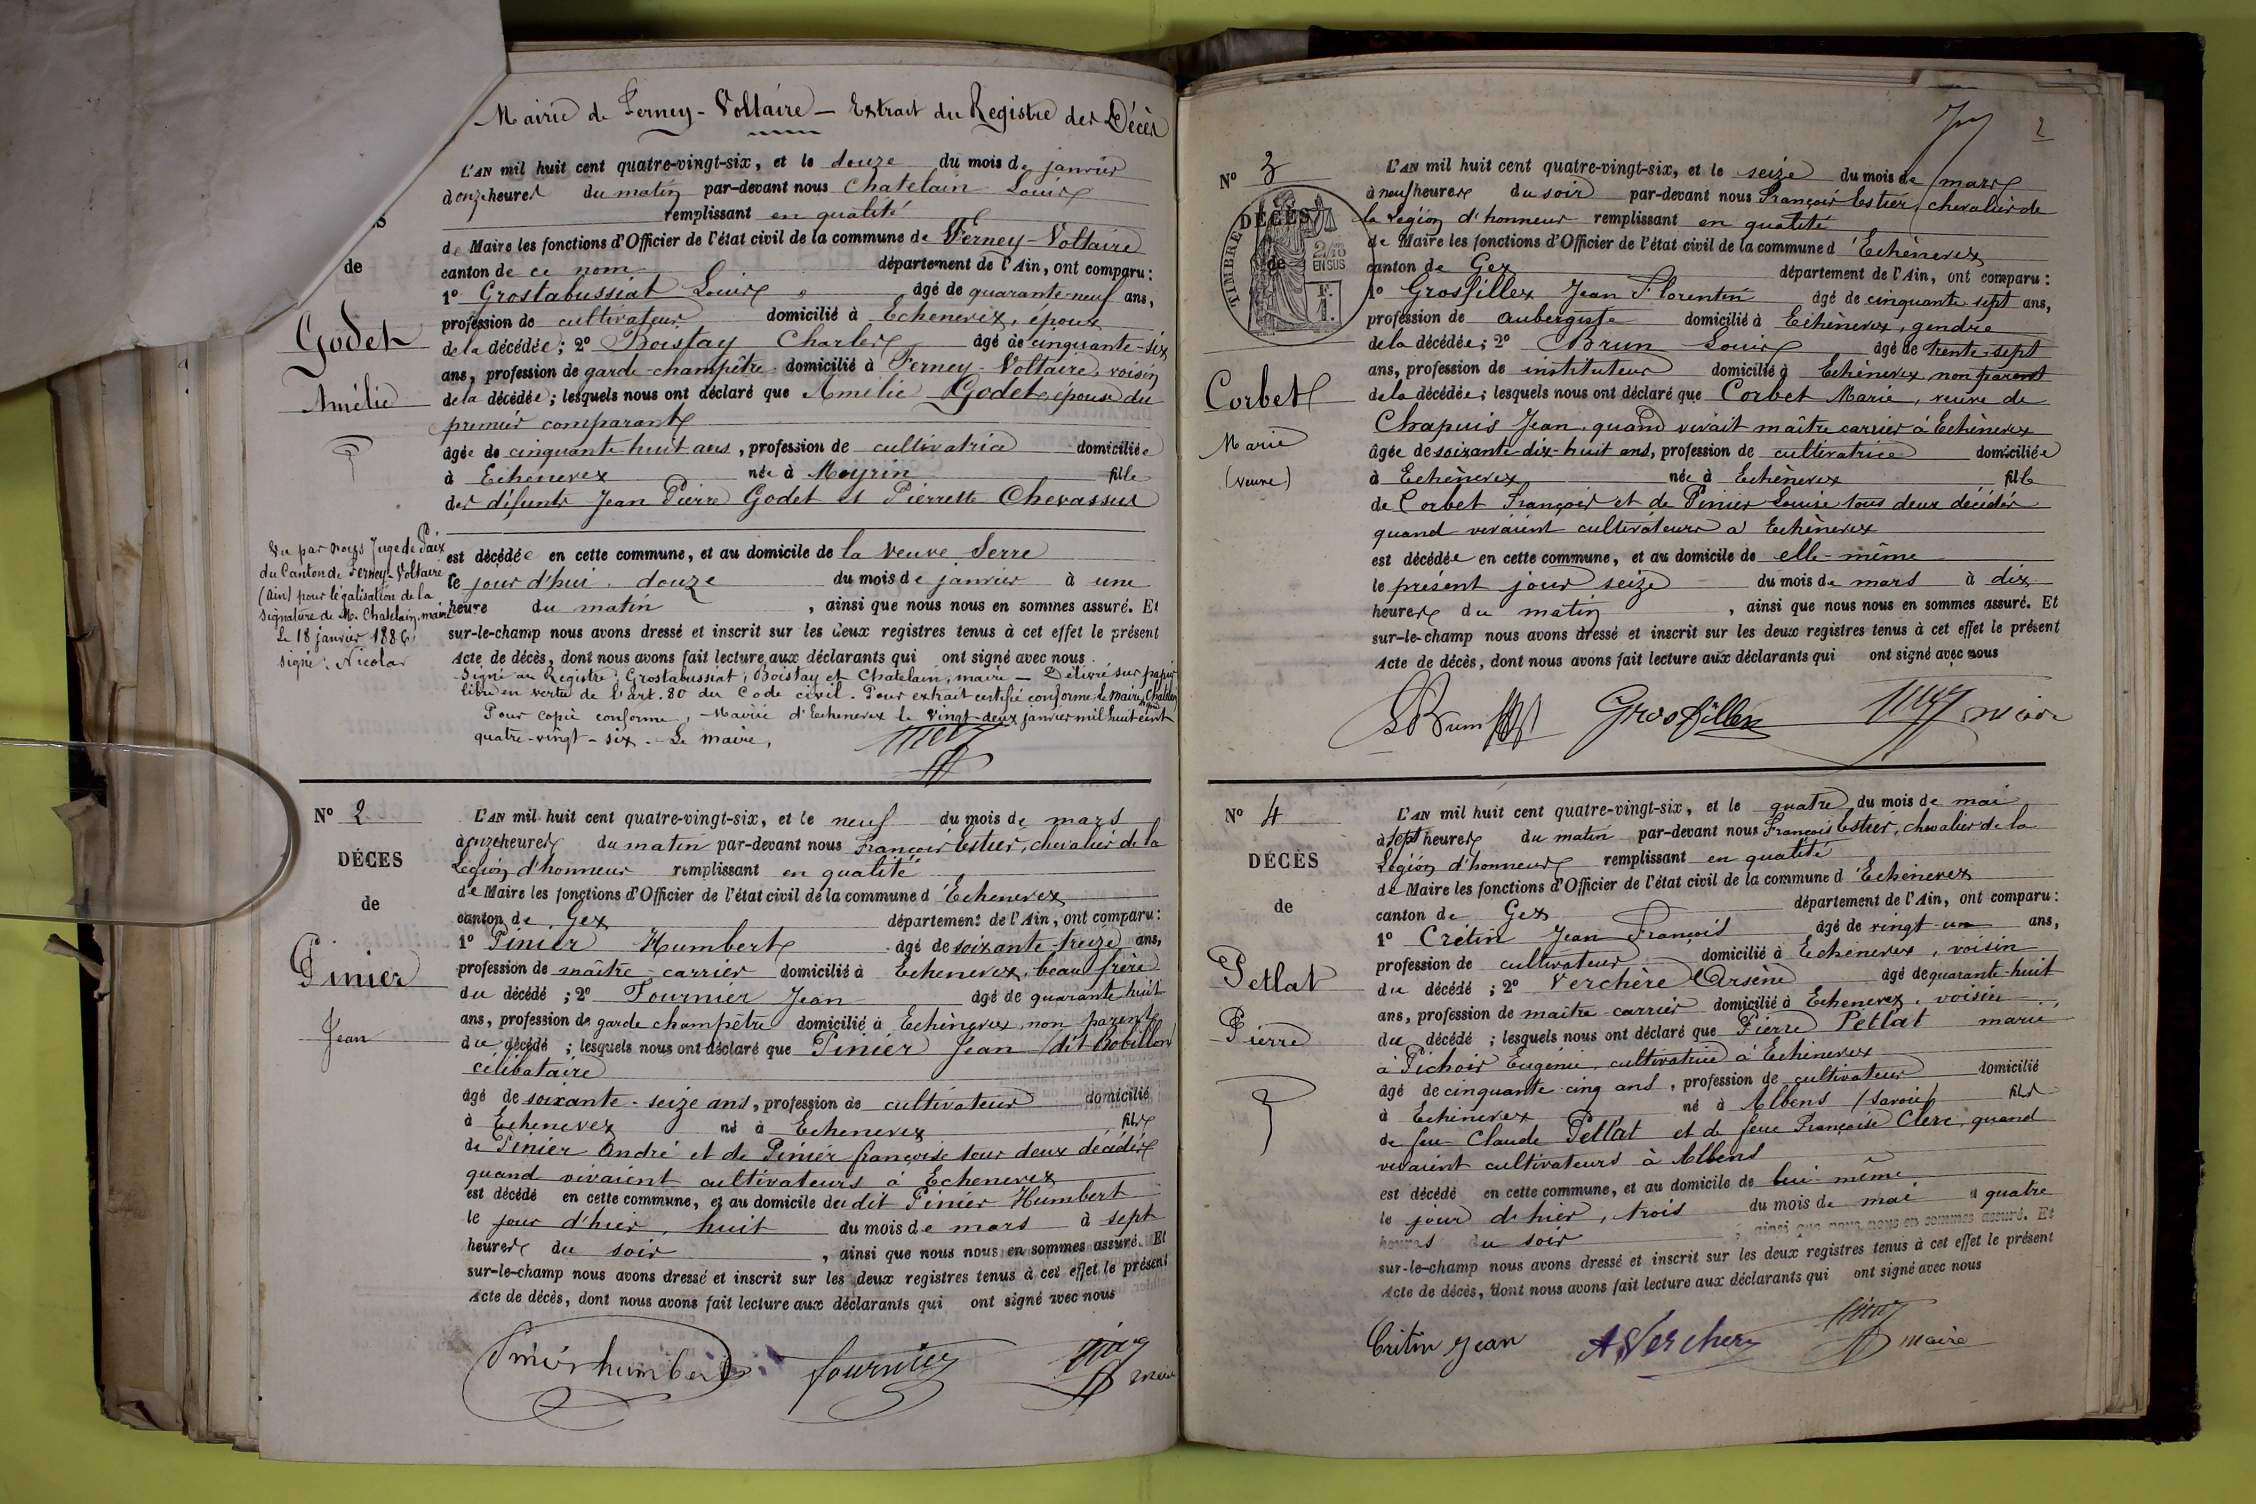 Mairie de Ferney-Voltaire — Extrait du Registre des Décès
L'AN mil huit cent quatre-vingt-six, et le douze du mois de janvier
à onze heures du matin par-devant nous Chatelain Louis
remplissant en qualité
de Maire les fonctions d'Officier de l'état civil de la commune de Ferney-Voltaire
canton de ce nom département de l'Ain, ont comparu :
1º Grostabussiat Louis âgé de quarante-neuf ans,
profession de cultivateur domicilié à Echenevex, époux
de la décédée ; 2º Boistay Charles âgé de cinquante-six
ans, profession de garde-champêtre domicilié à Ferney-Voltaire, voisin
de la décédée ; lesquels nous ont déclaré que Amélie Godet, épouse du
premier comparant
âgée de cinquante huit ans, profession de cultivatrice domiciliée
à Echenevex née à Meyrin fille
des défunts Jean Pierre Godet et Pierrette Chevassus
est décédée en cette commune, et au domicile de la veuve Serre
le jour d'hui douze du mois de janvier à une
heure du matin, ainsi que nous nous en sommes assuré. Et
sur-le-champ nous avons dressé et inscrit sur les deux registres tenus à cet effet le présent
Acte de décès, dont nous avons fait lecture aux déclarants qui ont signé avec nous
Signé au Registre, Grostabussiat, Boistay et Chatelain, maire — Délivré sur papier
libre en vertu de l'art. 80 du Code civil. Pour extrait certifié conforme, le maire, signé Chatelain
Pour copie conforme, Mairie d'Echenevex le vingt-deux janvier mil huit cent
quatre-vingt-six. Le maire,
de
Godet
Amélie
Vu par nous Juge de Paix
du Canton de Ferney-Voltaire
(Ain) pour légalisation de la
signature de M. Chatelain, maire
Le 18 janvier 1886
signé : Nicolas
Nº 2
DÉCES
de
Pinier
Jean
L'AN mil huit cent quatre-vingt-six, et le neuf du mois de mars
à onze heures du matin par-devant nous François Estier, chevalier de la
Légion d'honneur remplissant en qualité
de Maire les fonctions d'Officier de l'état civil de la commune d'Echenevex
canton de Gex département de l'Ain, ont comparu :
1º Pinier Humbert âgé de soixante-treize ans,
profession de maître-carrier domicilié à Echenevex, beau frère
du décédé ; 2º Fournier Jean âgé de quarante huit
ans, profession de garde champêtre domicilié à Echènevex, non parent
du décédé ; lesquels nous ont déclaré que Pinier Jean (dit Bobillon)
célibataire
âgé de soixante-seize ans, profession de cultivateur domicilié
à Echenevex né à Echenevex fils
de Pinier André et de Pinier françoise tous deux décédés
quand vivaient cultivateurs à Echenevex
est décédé en cette commune, et au domicile du dit Pinier Humbert
le jour d'hier, huit du mois de mars à sept
heures du soir, ainsi que nous nous en sommes assuré. Et
sur-le-champ nous avons dressé et inscrit sur les deux registres tenus à cet effet le présent
Acte de décès, dont nous avons fait lecture aux déclarants qui ont signé avec nous
Pinier humbert fournier maire
2
Nº 3
DÉCÈS
de
TIMBRE
2/10 EN SUS
Corbet
Marie
(veuve)
L'AN mil huit cent quatre-vingt-six, et le seize du mois de mars
à neuf heures du soir par-devant nous François Estier, chevalier de
la Légion d'honneur remplissant en qualité
de Maire les fonctions d'Officier de l'état civil de la commune d'Echènevex
canton de Gex département de l'Ain, ont comparu :
1º Grosfillex Jean Florentin âgé de cinquante-sept ans,
profession de aubergiste domicilié à Echènevex, gendre
de la décédée ; 2º Brun Louis âgé de trente-sept
ans, profession de instituteur domicilié à Echènevex, non parent
de la décédée ; lesquels nous ont déclaré que Corbet Marie, veuve de
Chapuis Jean, quand vivait maître carrier à Echènevex
âgée de soixante-dix-huit ans, profession de cultivatrice domiciliée
à Echènevex née à Echènevex fille
de Corbet François et de Pinier Louise tous deux décédés
quand vivaient cultivateurs à Echènevex
est décédée en cette commune, et au domicile de elle-même
le présent jour seize du mois de mars à dix
heures du matin, ainsi que nous nous en sommes assuré. Et
sur-le-champ nous avons dressé et inscrit sur les deux registres tenus à cet effet le présent
Acte de décès, dont nous avons fait lecture aux déclarants qui ont signé avec nous
LBrun Grosfillex maire
Nº 4
DÉCÈS
de
Petlat
Pierre
L'AN mil huit cent quatre-vingt-six, et le quatre du mois de mai
à sept heures du matin par-devant nous François Estier, chevalier de la
Légion d'honneur remplissant en qualité
de Maire les fonctions d'Officier de l'état civil de la commune d'Echenevex
canton de Gex département de l'Ain, ont comparu :
1º Crétin Jean François âgé de vingt-un ans,
profession de cultivateur domicilié à Echenevex, voisin
du décédé ; 2º Verchère Arsène âgé de quarante-huit
ans, profession de maître-carrier domicilié à Echenevex, voisin
du décédé ; lesquels nous ont déclaré que Pierre Petlat marié
à Pichoir Eugénie cultivatrice à Echenevex
âgé de cinquante cinq ans, profession de cultivateur domicilié
à Echenevex né à Albens (Savoie) fils
de feu Claude Petlat et de feue Françoise Clerc, quand
vivaient cultivateurs à Albens
est décédé en cette commune, et au domicile de lui-même
le jour de hier, trois du mois de mai à quatre
heures du soir, ainsi que nous nous en sommes assuré. Et
sur-le-champ nous avons dressé et inscrit sur les deux registres tenus à cet effet le présent
Acte de décès, dont nous avons fait lecture aux déclarants qui ont signé avec nous
Critin Jean A Vercher maire